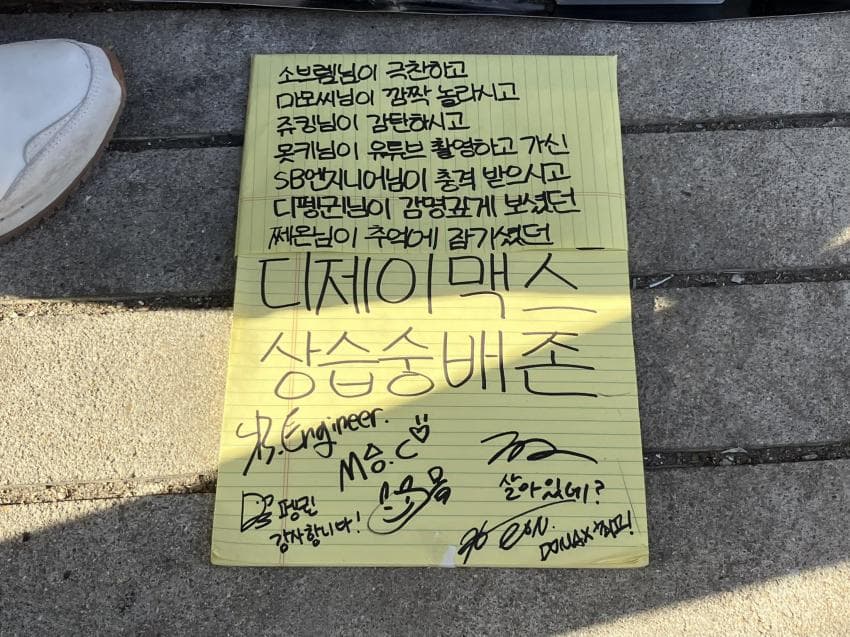 소브렘님이 극찬하고
마모씨님이 깜짝 놀라시고
쥬킹님이 감탄하시고
못키님이 유튜브 촬영하고 가신
SB엔지니어님이 충격 받으시고
디펭귄님이 감명깊게 보셨던
쩨온님이 추억에 잠기셨던
디제이맥스
상습숭배존
S.B.Engineer.
M습.C
살아있네?
펭귄
감사합니다!
DJMAX